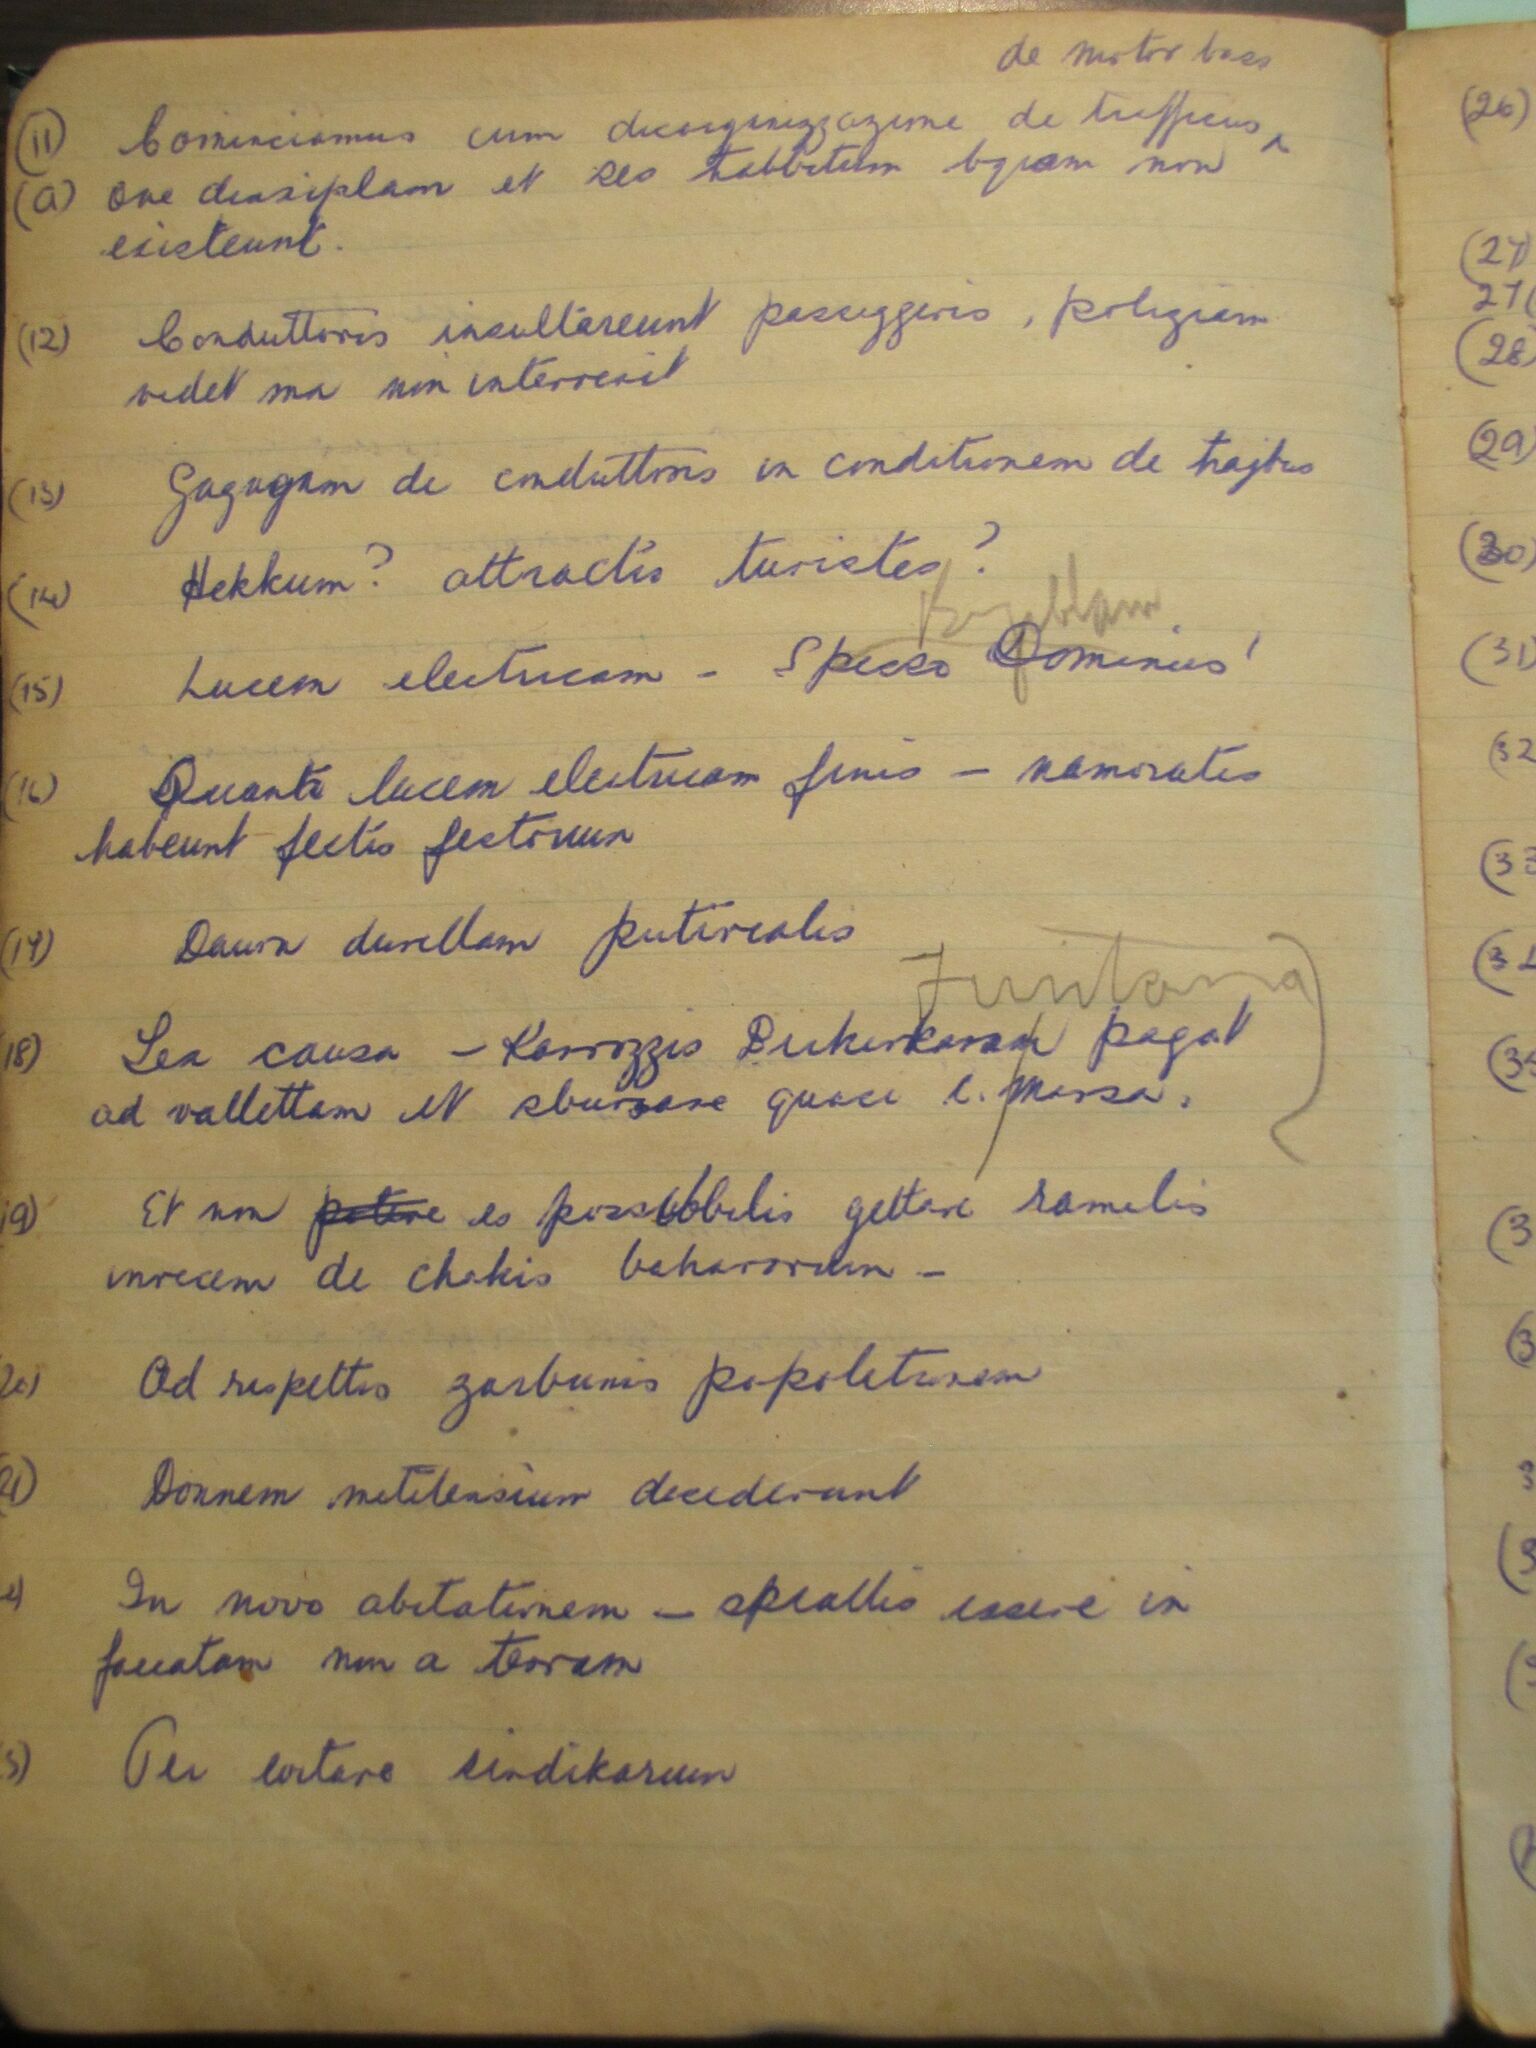 de motor bass
(11) Cominciamus cum disorganizzazione de trafficus ^
(a) Ove dissiplam et res habbetum bqiam non
existeunt.
(12) Conduttoris insultareunt passeggeris, poliziam
videt ma non intervenit
(13) Gagagam de conduttoris in conditionem de trajbus
(14) Hekkum? attractis turistes?
(15) Lucem electricam - Spesso Dominius'
(16) Quanti lucem electricam finis - namoratis
habeunt festis festorum
(17) Daum durellam putirealis
Funtana
(18) Sea causa - Karrozzis Birkirkaram pagat
ad vallettam et sbursare quasi l. Marsa.
19) Et non potere es possibbilis gettare ramelis
invecem de chakis baharorum -
20) Ad respettis zarbunis popolationem
21) Donnem metitensium decederunt
In novo abitationem - speallis essere in
facciatam non a terram
3) Per evitare sindikarum
(26)
(27)
27(
(28)
(29)
(30)
(31)
(32
(33
(3
(35
(3
(3
3
(3